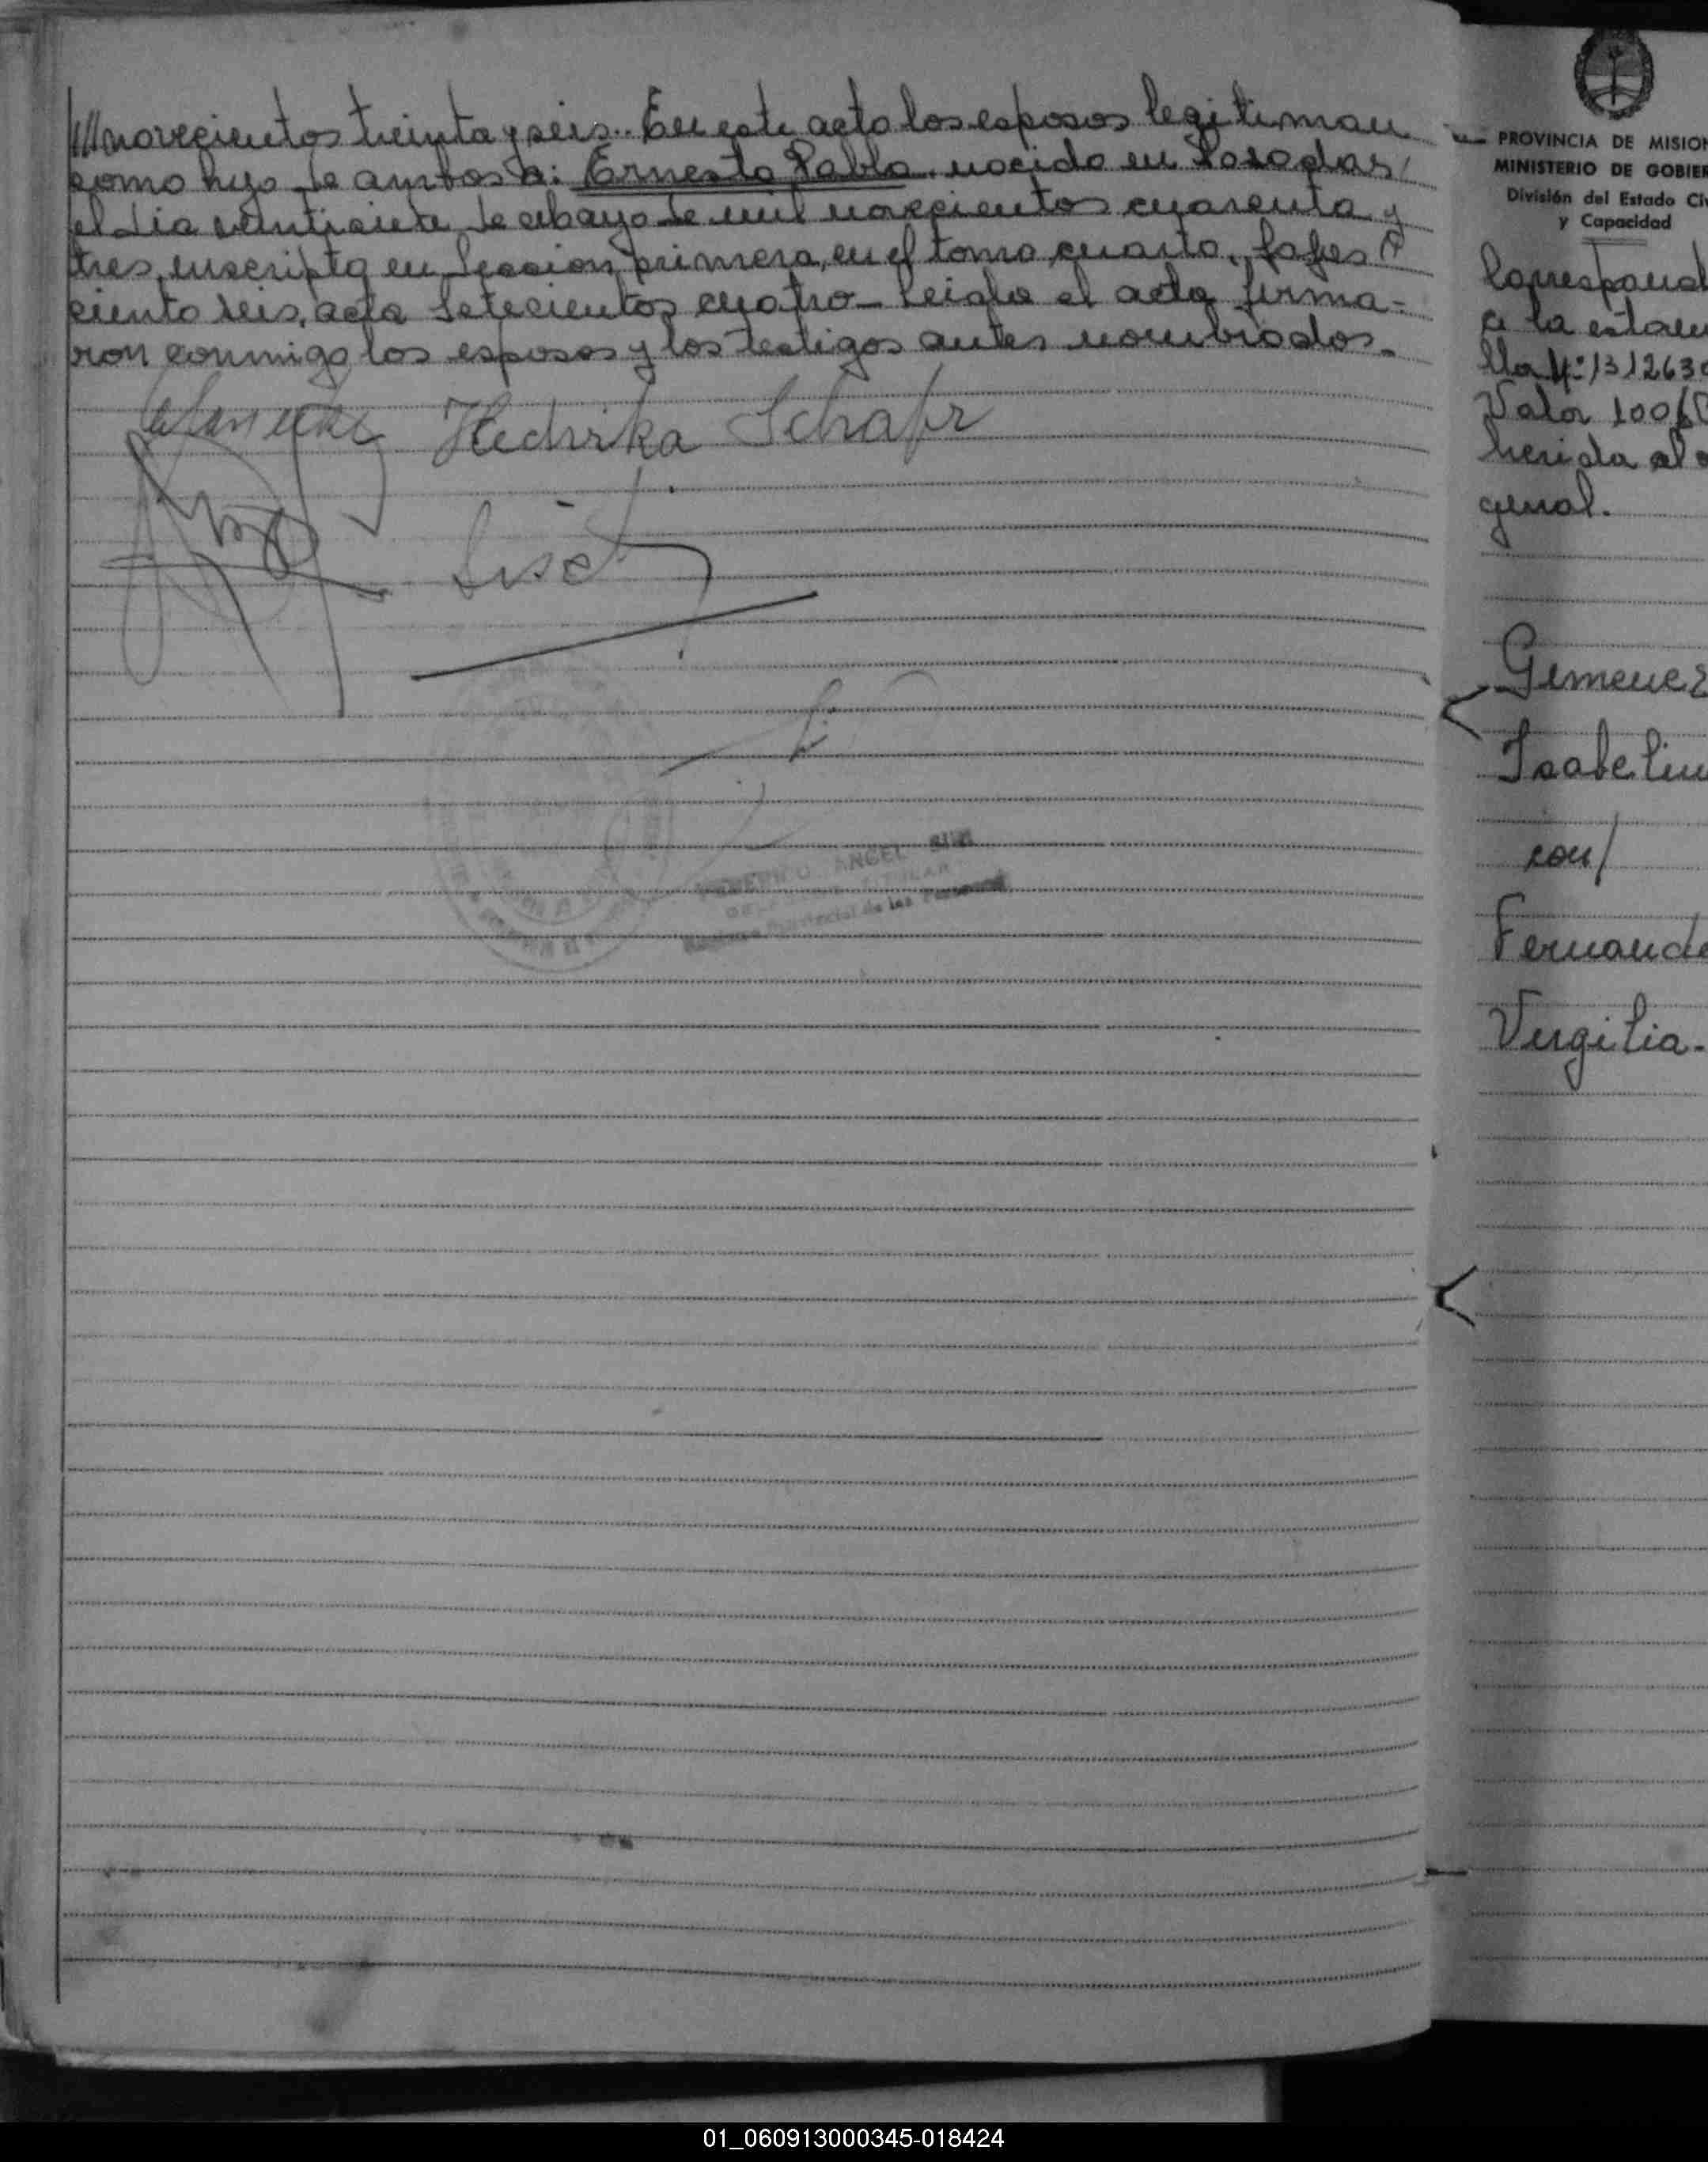 ///novecientos treinta y seis.. En este acto los esposos legitiman
como hijo de ambos a: Ernesto Pablo, nacido en Posadas,
el dia veintisiete de Mayo de mil novecientos cuarenta y
tres, inscripto en Seccion primera, en el tomo cuarto, fojas
ciento seis, acta setecientos cuatro - Leida el acta firma-
ron conmigo los esposos y los testigos antes nombrados.-
Hedirka Schafr
ANGEL
TITULAR
Provincial de las Personas
PROVINCIA DE MISION
MINISTERIO DE GOBIER
División del Estado Civ
y Capacidad
Correspond
a la estam
lla Nº: 1312630
Valor 100
herida al o
ginal.
Gimenez
Isabelin
con/
Fernande
Virgilia-
01_060913000345-018424